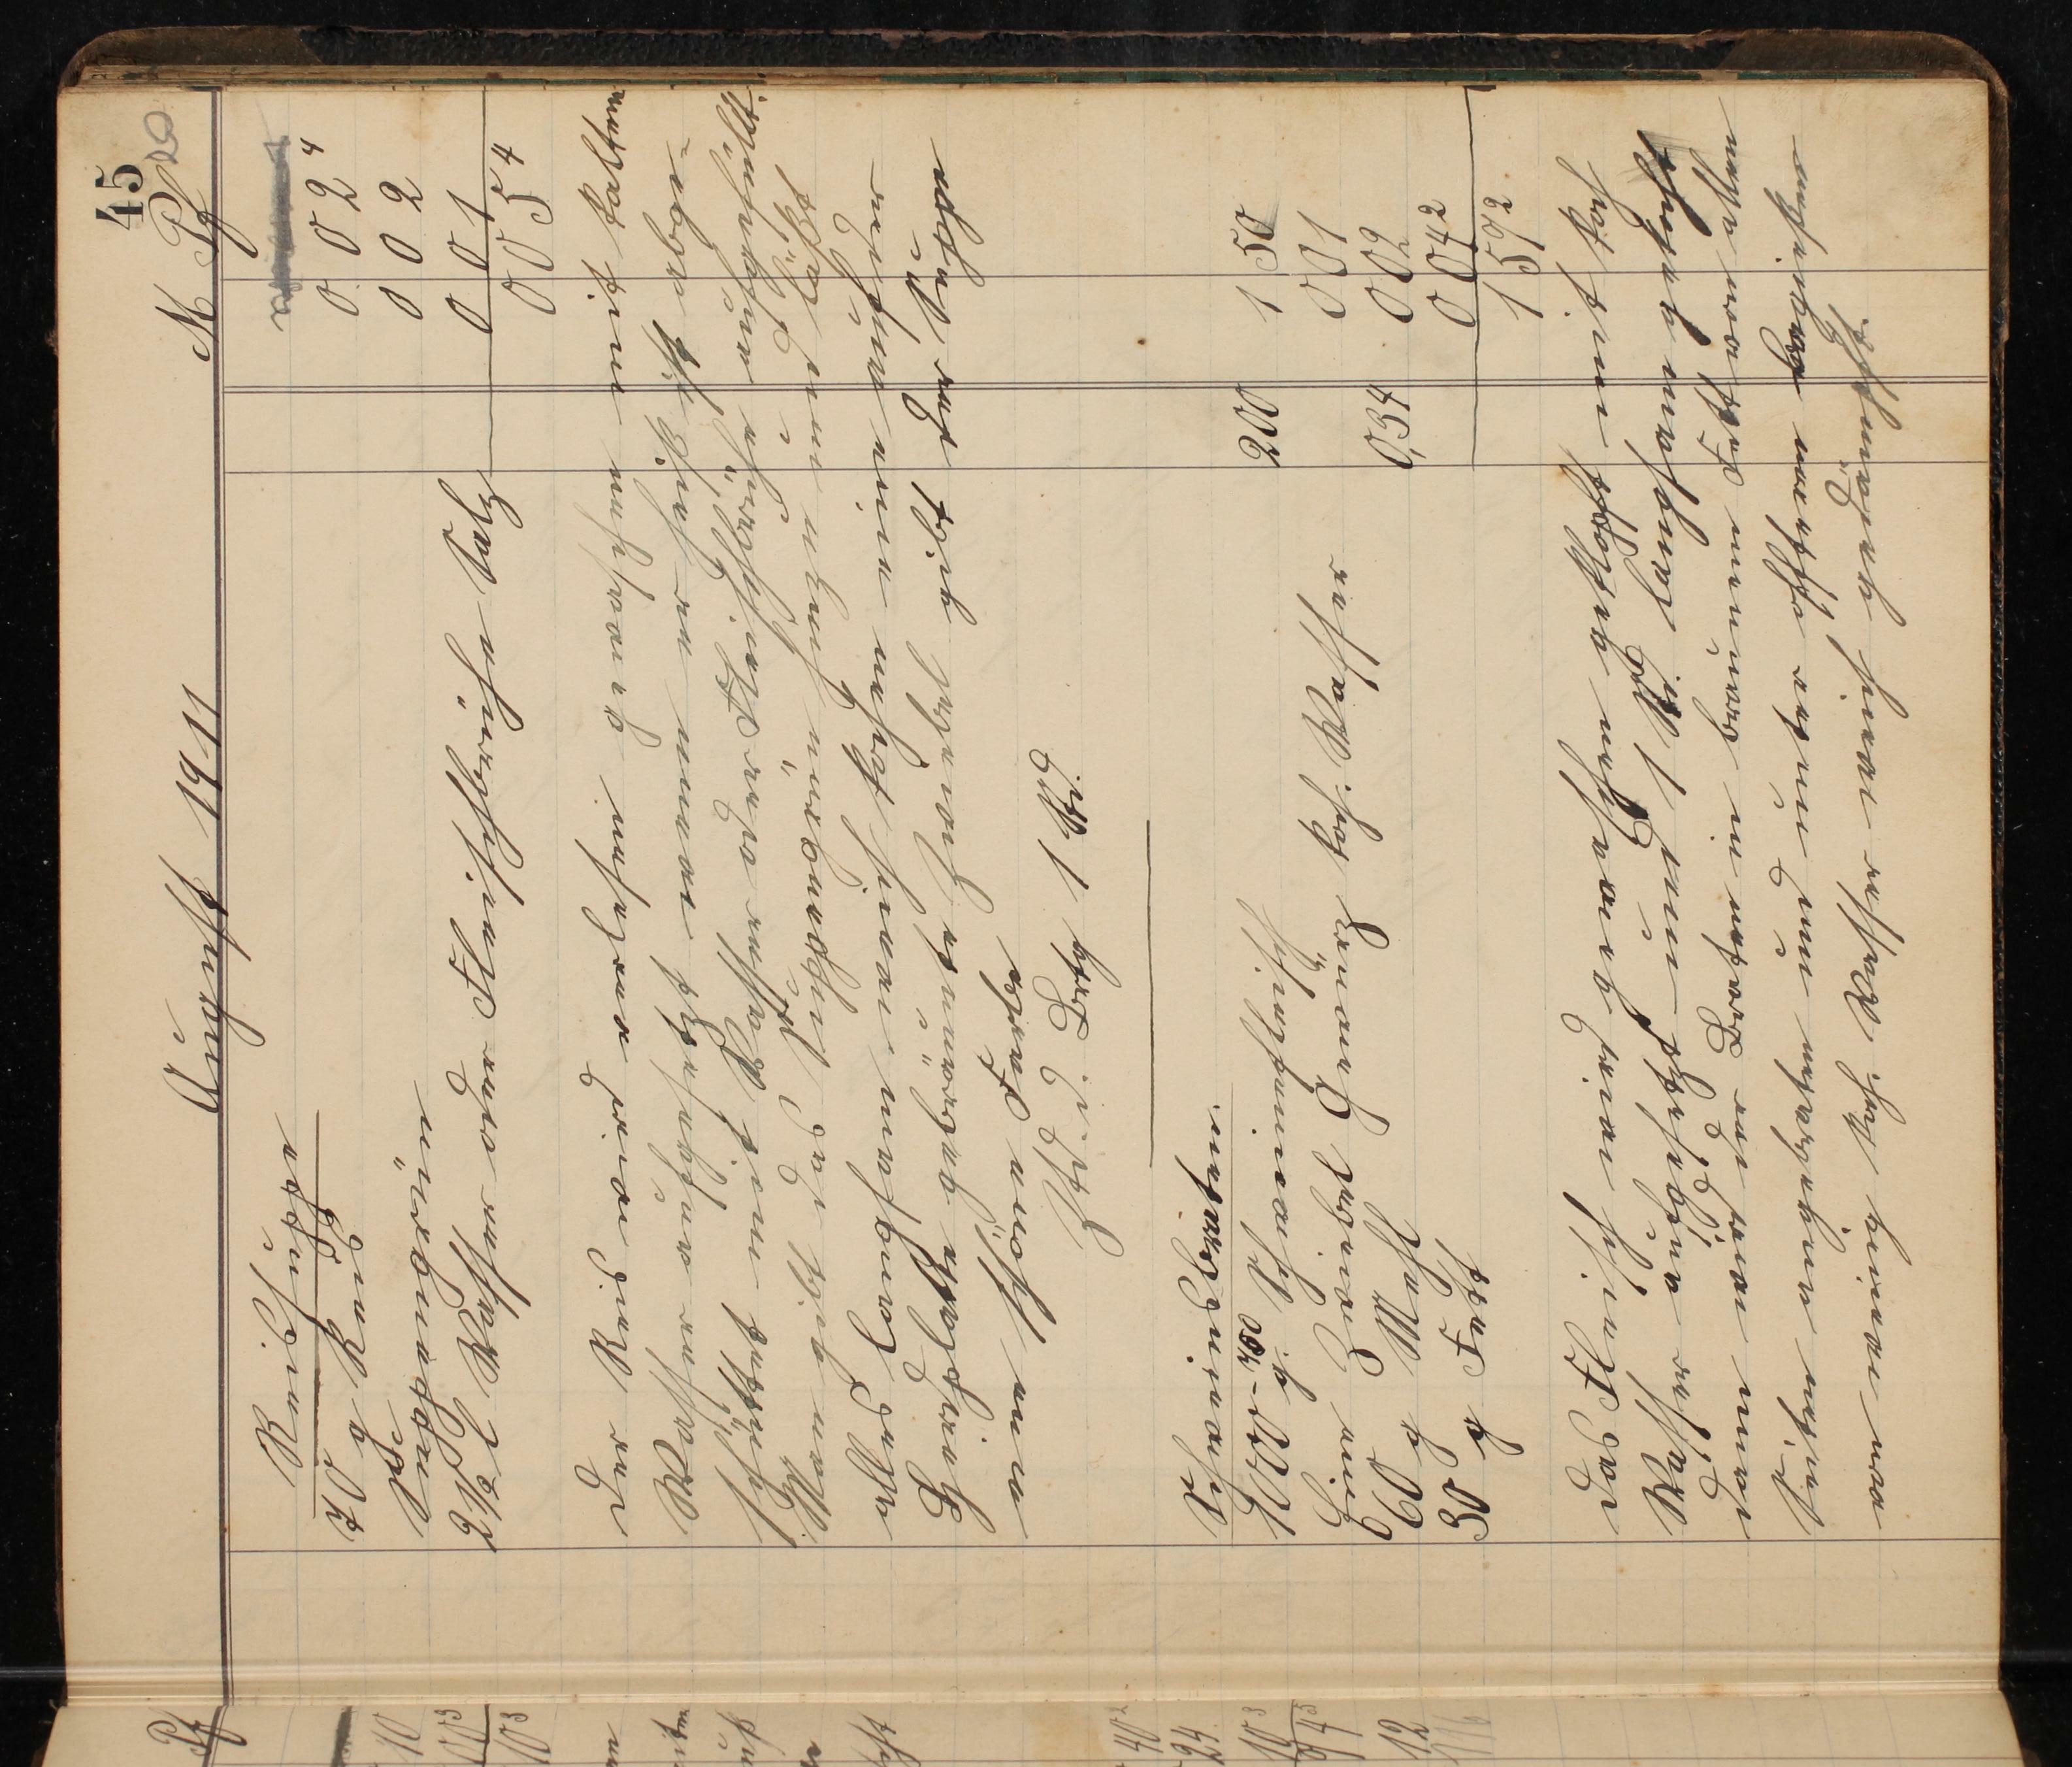 45
August 1911
M Pf
20
Reissuppe
70 g Reis
0 02 4
Suppengrün
0 02
2½ l Wasser oder Fleischbrühe Salz
0 01
0 05 4
Der Reis wird verlesen, gewaschen mit kaltem
Wasser aufgesetzt, wenn er heiß ist, abge-
schüttet mit Wasser oder Fleischbrühe aufgefüllt.
Man gibt das Suppengrün hinzu und läßt
alles langsam weich kochen eine aufgel.
gibt der Suppe
eine schöne Farbe
Ztd. d. Brtg. 1 Std.
Schweinebraten.
1000 - 750 g Schweinefleisch
200
1 50
Eine Zwiebel Gewürz koch. Wasser
0 01
60 g Mehl
0,34
0 02
30 g Fett
0 04 2
1 57 2
Das Fleisch wird gewaschen, geklopft mit koch
Wasser aufgesetzt und 1 Std langsam gekocht
dann wird der Braten in braunem Fett von allen
Seiten angebraten und unter öfterem begießen
von wenig kochd. Wasser weich gedämpft.
Pf
10
00 3
10 3
40 2
24
10 3
74 5
12
116